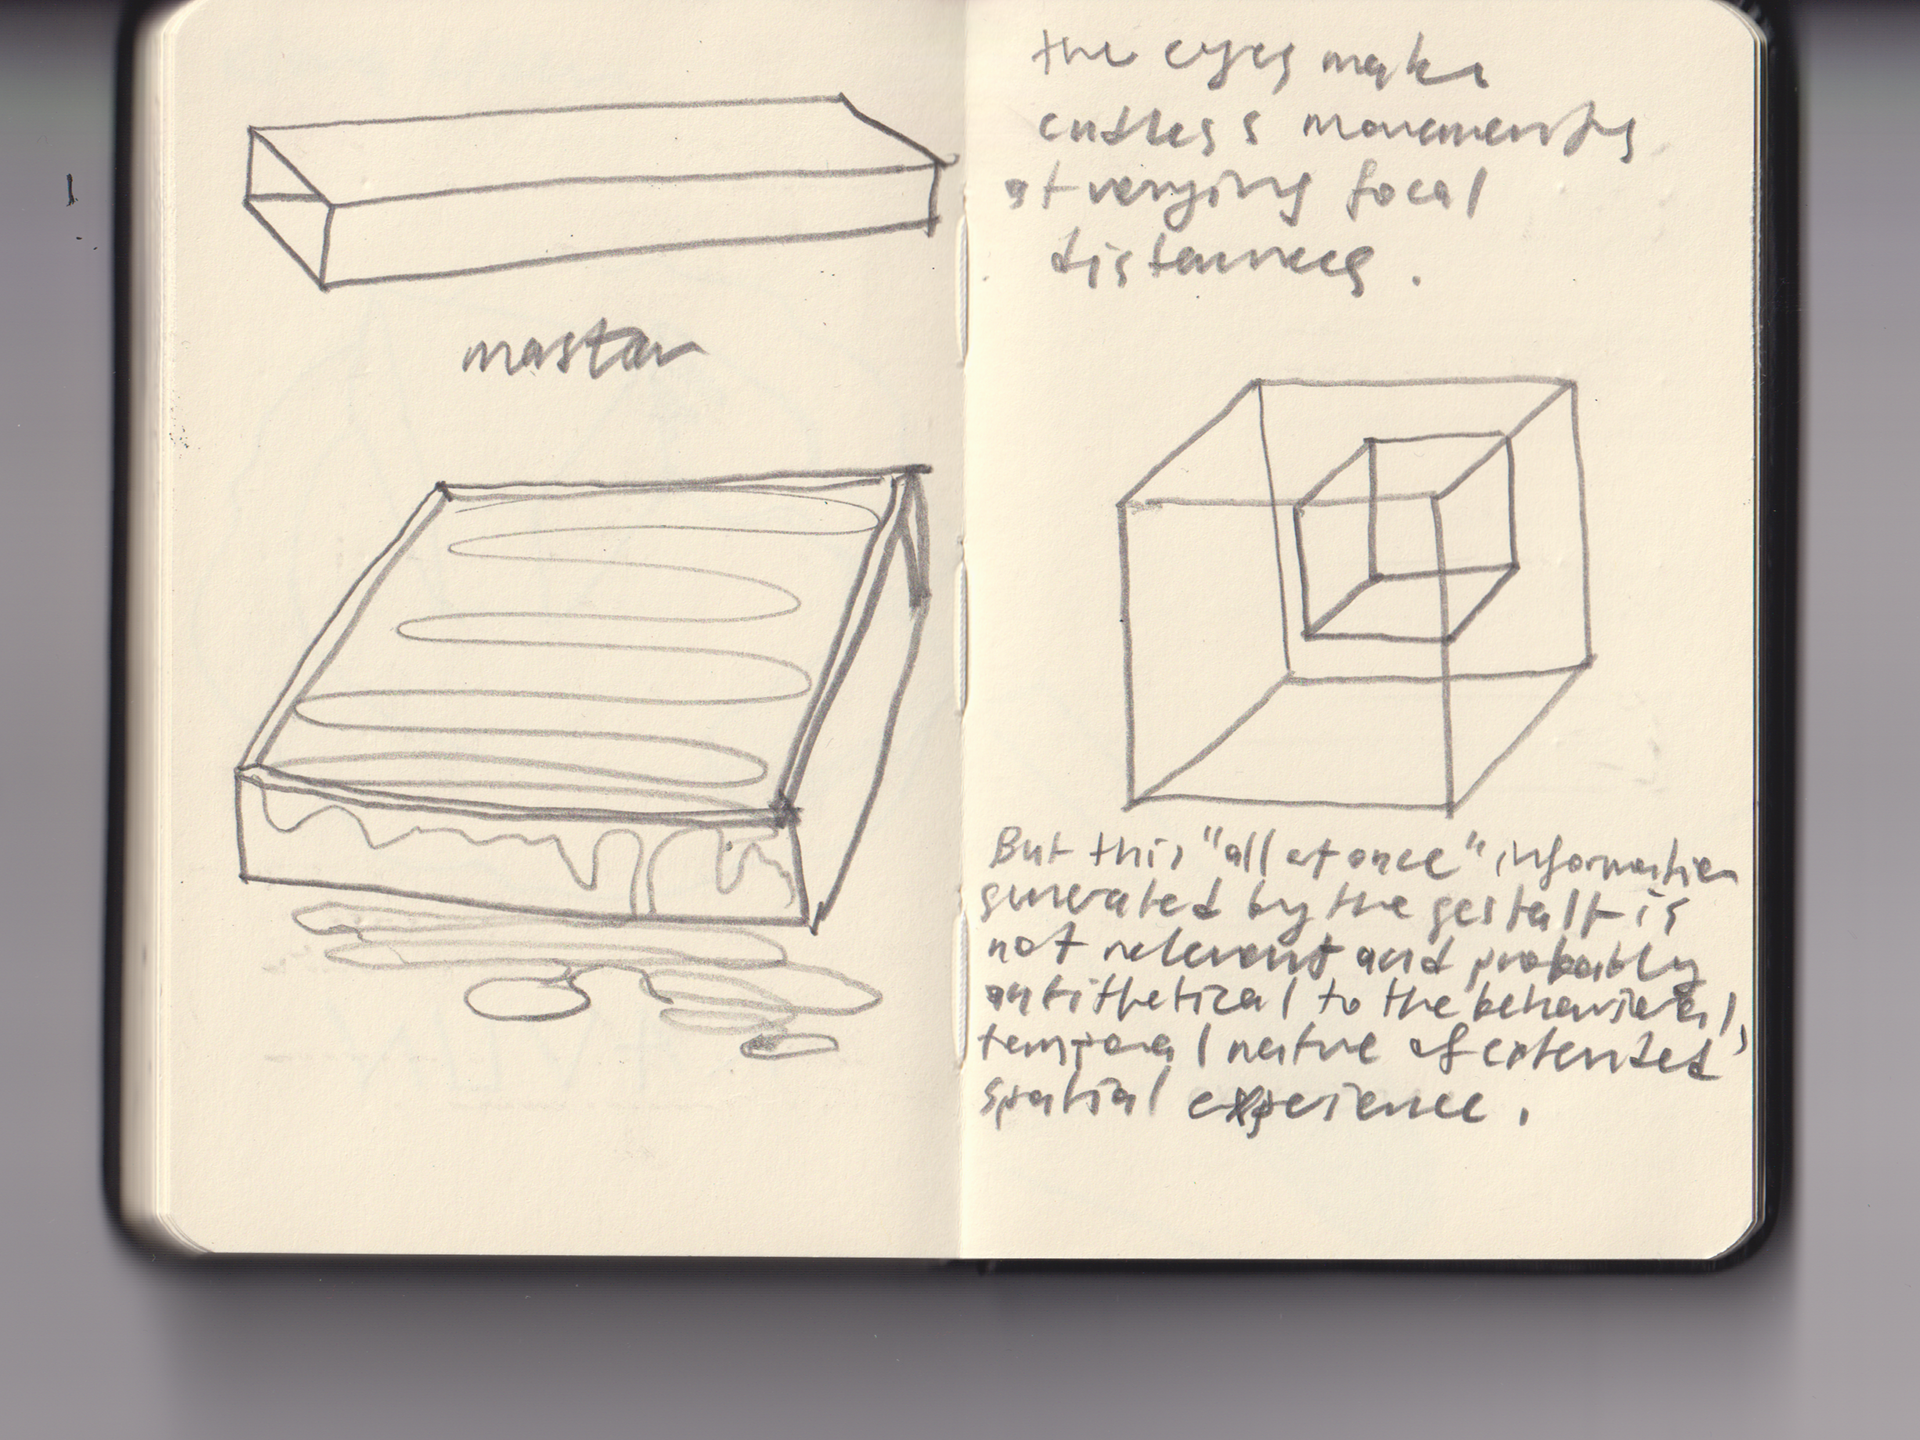 mastan
the eyes make
endless movements
at varying focal
distances.
But this "all at once" information
generated by the gestalt is
not relevant and probably
antithetical to the behavioral,
temporal nature of extended
spatial experience.